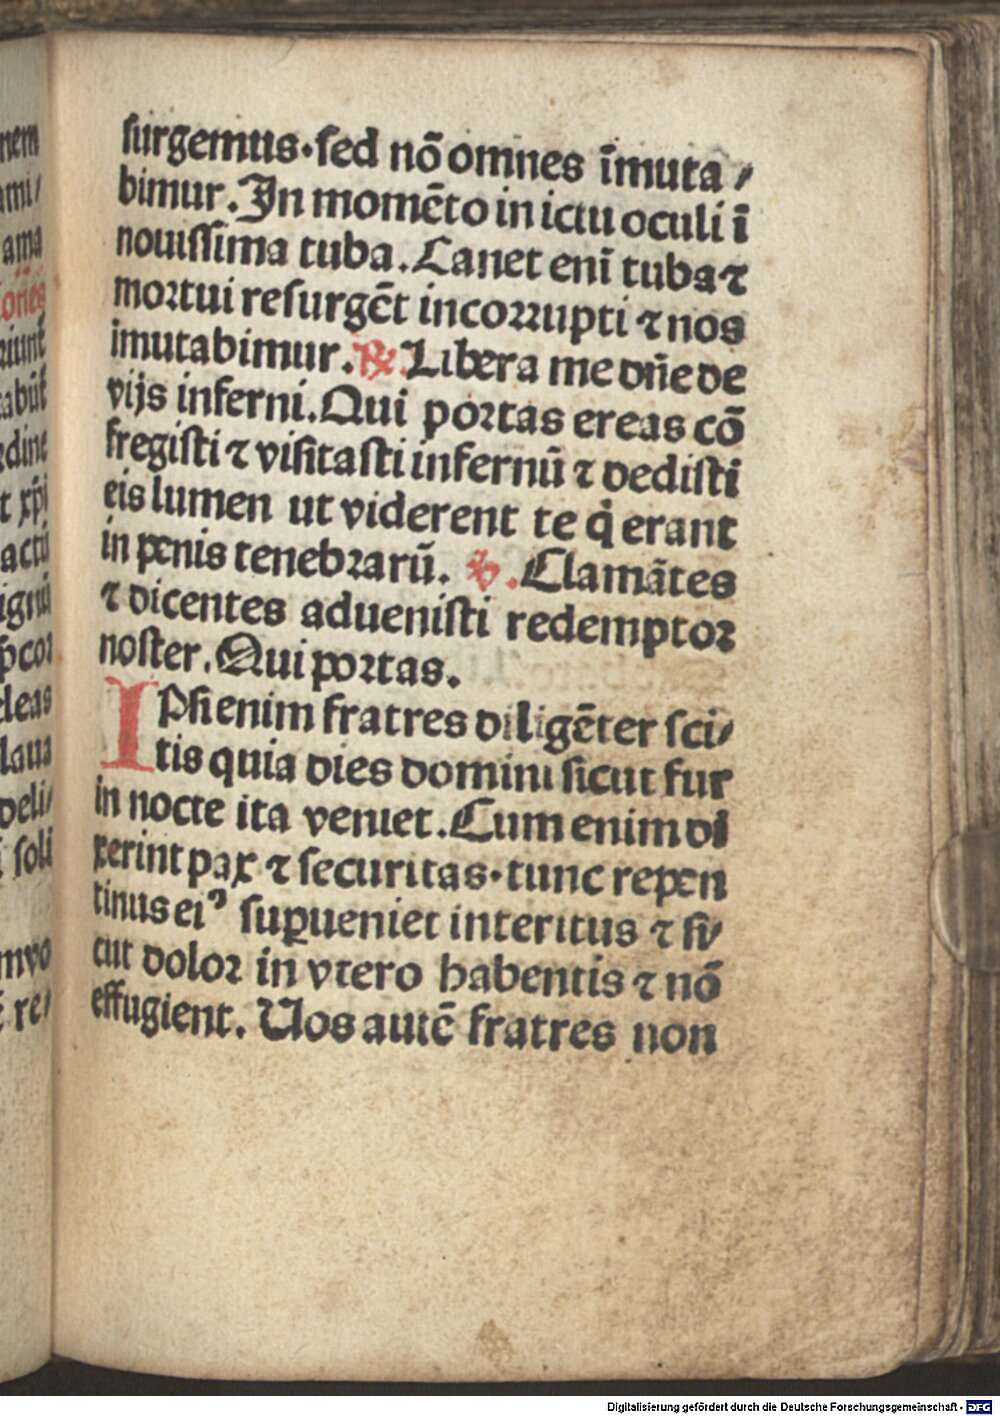 surgemus. sed nō omnes īmuta/
bimur. In momēto in ictu oculi ī
nouissima tuba. Canet enī tuba ⁊
mortui resurgēt incorrupti ⁊ nos
imutabimur. ℟. Libera me dn̄e de
vijs inferni. Qui portas ereas cō
fregisti ⁊ visitasti infernū ⁊ dedisti
eis lumen ut viderent te q̇ erant
in penis tenebrarū. ℣. Clamātes
⁊ dicentes aduenisti redemptor
noster. Qui portas.
IPsi enim fratres diligēter sci/
tis quia dies domini sicut fur
in nocte ita veniet. Cum enim di
xerint pax ⁊ securitas. tunc repen
tinus eiꝰ suꝑueniet interitus ⁊ si/
cut dolor in vtero habentis ⁊ nō
effugient. Uos autē fratres non
nem
ami/
ama
riunt
dine
t xp̄i
actū
ignū
leas
laua
deli/
soli
re/
Digitalisierung gefördert durch die Deutsche Forschungsgemeinschaft - DFG